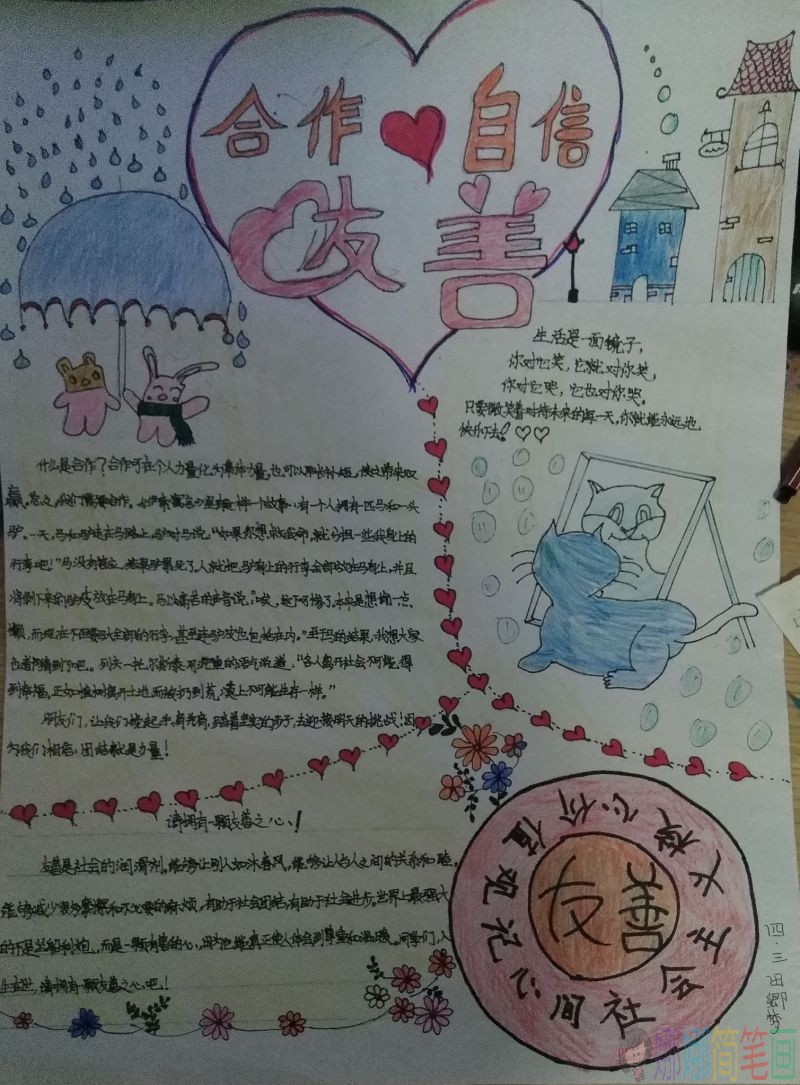 合作 自信
友善
生活是一面镜子，
你对它笑，它就对你笑，
你对它哭，它也对你哭。
只要微笑着对待未来的每一天，你就能永远地
快乐下去！
什么是合作？合作可在个人力量化为集体力量，也可以取长补短，使之带来双
赢。总之，我们需要合作。《伊索寓言》里有这样一个故事：有一个人拥有一匹马和一头
驴。一天，马和驴走在马路上，驴对马说，“如果你想救我命，就分担一些我身上的
行李吧！”马没有答应，结果驴累死了。人就把驴身上的行李全部放在马身上，并且
将剥下来的驴皮放在马身上。马以痛苦的声音说，“唉，这下可惨了，本来是想偷一点
懒，而现在不但要驮全部的行李，甚至连驴皮也包括在内。”至于的结果，我想大家
也都猜到了吧。列夫—托尔斯泰 语气说道，“各人离开社会不可能得
到幸福，正如植物离开土地而被扔到荒漠上不可能生存一样。”
朋友们，让我们挽起手，肩并肩，踏着坚实的步子，去迎接明天的挑战！因
为我们相信：团结就是力量！
请拥有一颗友善之心！
友善是社会的润滑剂，能够让别人如沐春风，能够让人与人之间的关系和睦，
能够减少很多摩擦和不必要的麻烦，有助于社会团结，有助于社会进步。世界上最强大
的不是坚船利炮，而是一颗友善的心，因为它能真正使人体会到尊重和温暖。同学们，人
生在世，请拥有一颗友善之心吧！
社会主义核心价值观
友善
四.三 田
娜姐简笔画